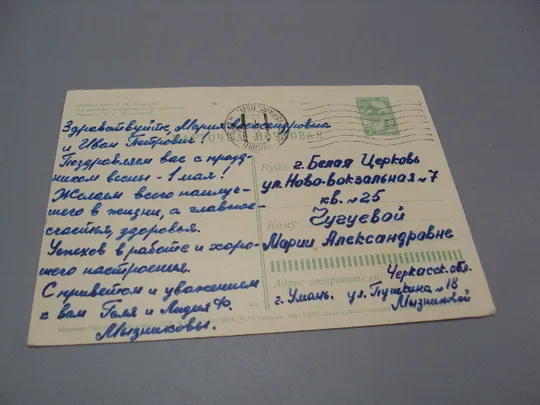 Здравствуйте, Мария Александровна
и Иван Петрович!
Поздравляем вас с празд-
ником весны - 1 мая!
Желаем всего наилуч-
шего в жизни, а главное-
счастья, здоровья.
Успехов в работе и хоро-
шего настроения.
С приветом и уважением
к вам Геля и Лидия Ф.
Мызниковы.
Куда г. Белая Церковь
ул. Ново-вокзальная №7
кв. №25
Кому Чугуевой
Марии Александравне
Адрес отправителя:
Черкасск. обл.
г. Умань. ул. Пушкина №18
Мызниковой